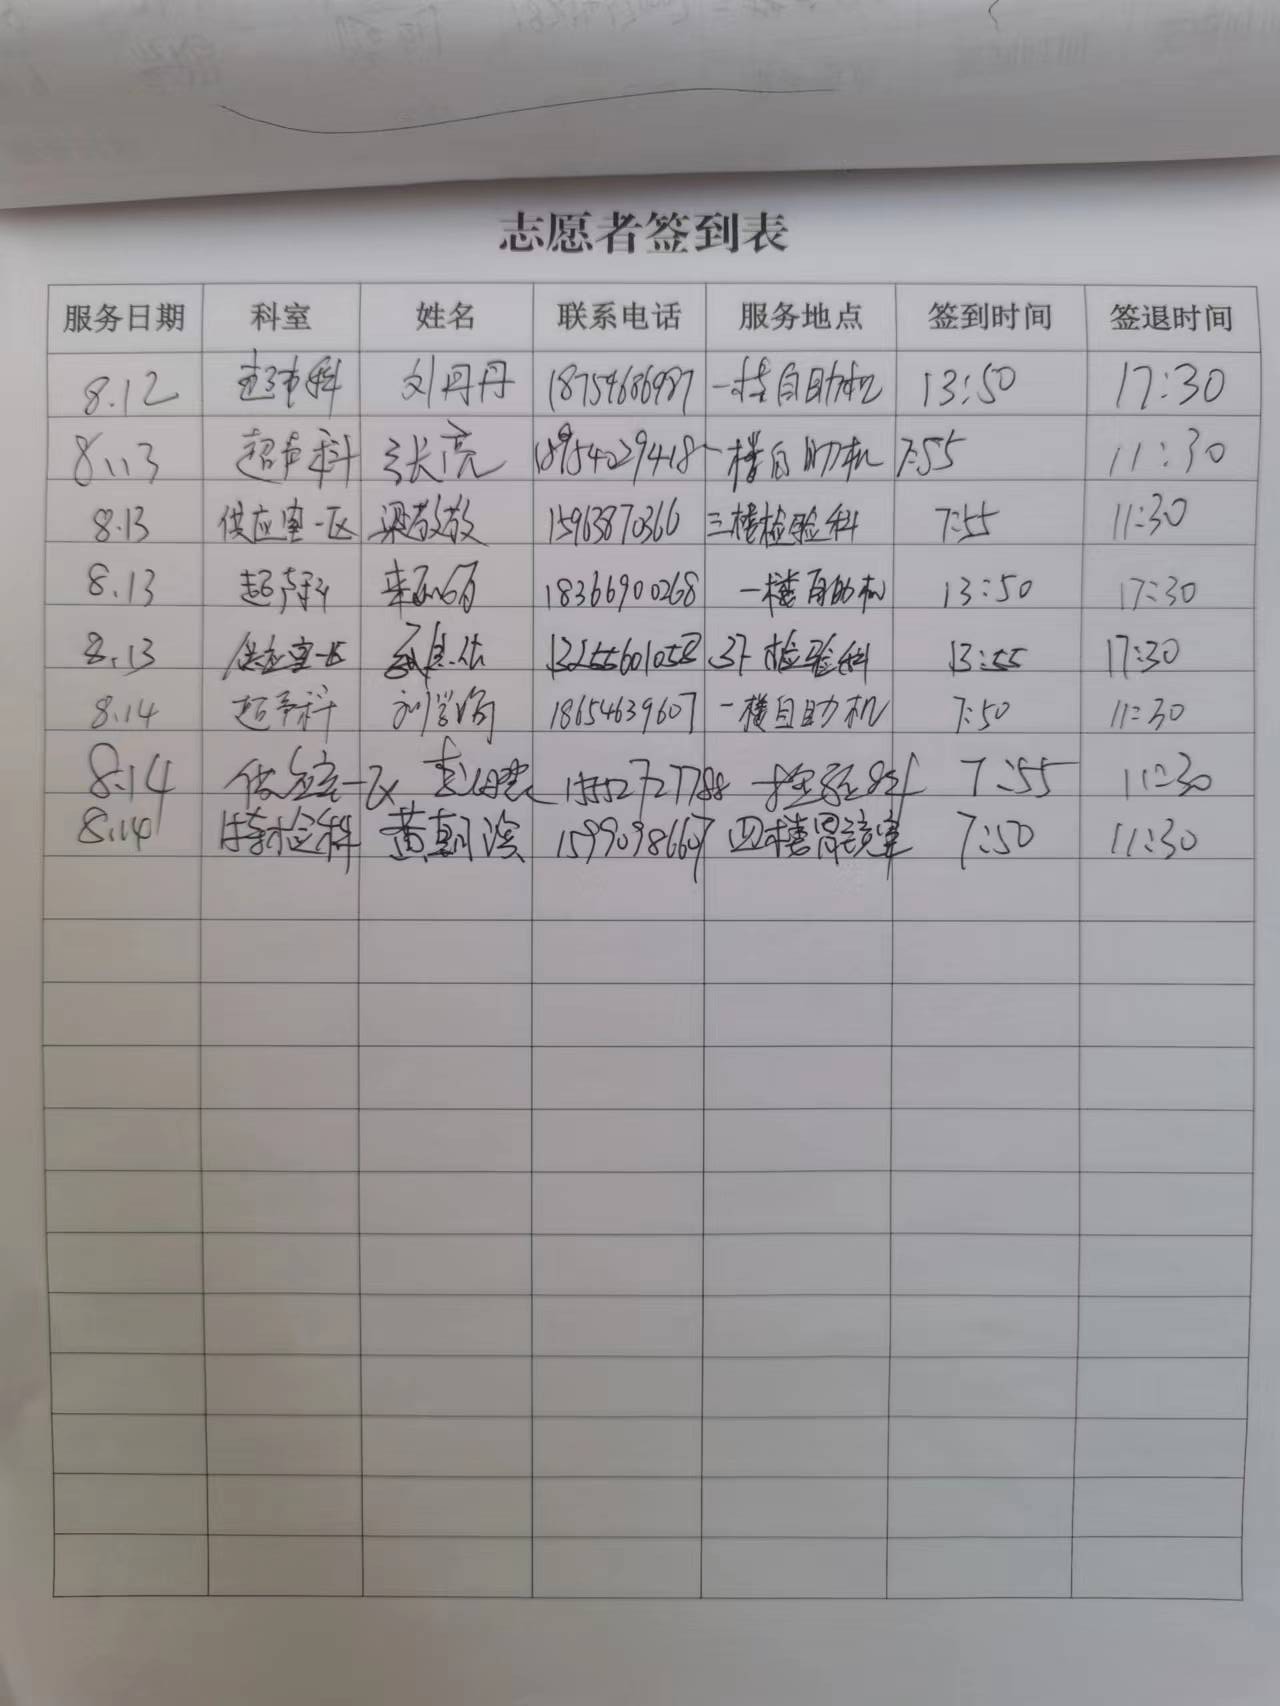 志愿者签到表
服务日期 科室 姓名 联系电话 服务地点 签到时间 签退时间
8.12 超声科 刘丹丹 18754686987 一楼自助机 13:50 17:30
8.13 超声科 张亮 18954029418 一楼自助机 7:55 11:30
8.13 供应室一区 梁敬敬 15963870366 三楼检验科 7:55 11:30
8.13 超声科 18366900268 一楼自助机 13:50 17:30
8.13 供应室一区 13255601058 3F检验科 13:55 17:30
8.14 超声科 18654639607 一楼自助机 7:50 11:30
8.14 供应室一区 15552727788 7:55 11:30
8.14 特检科 黄朝滨 四楼胃镜室 7:50 11:30